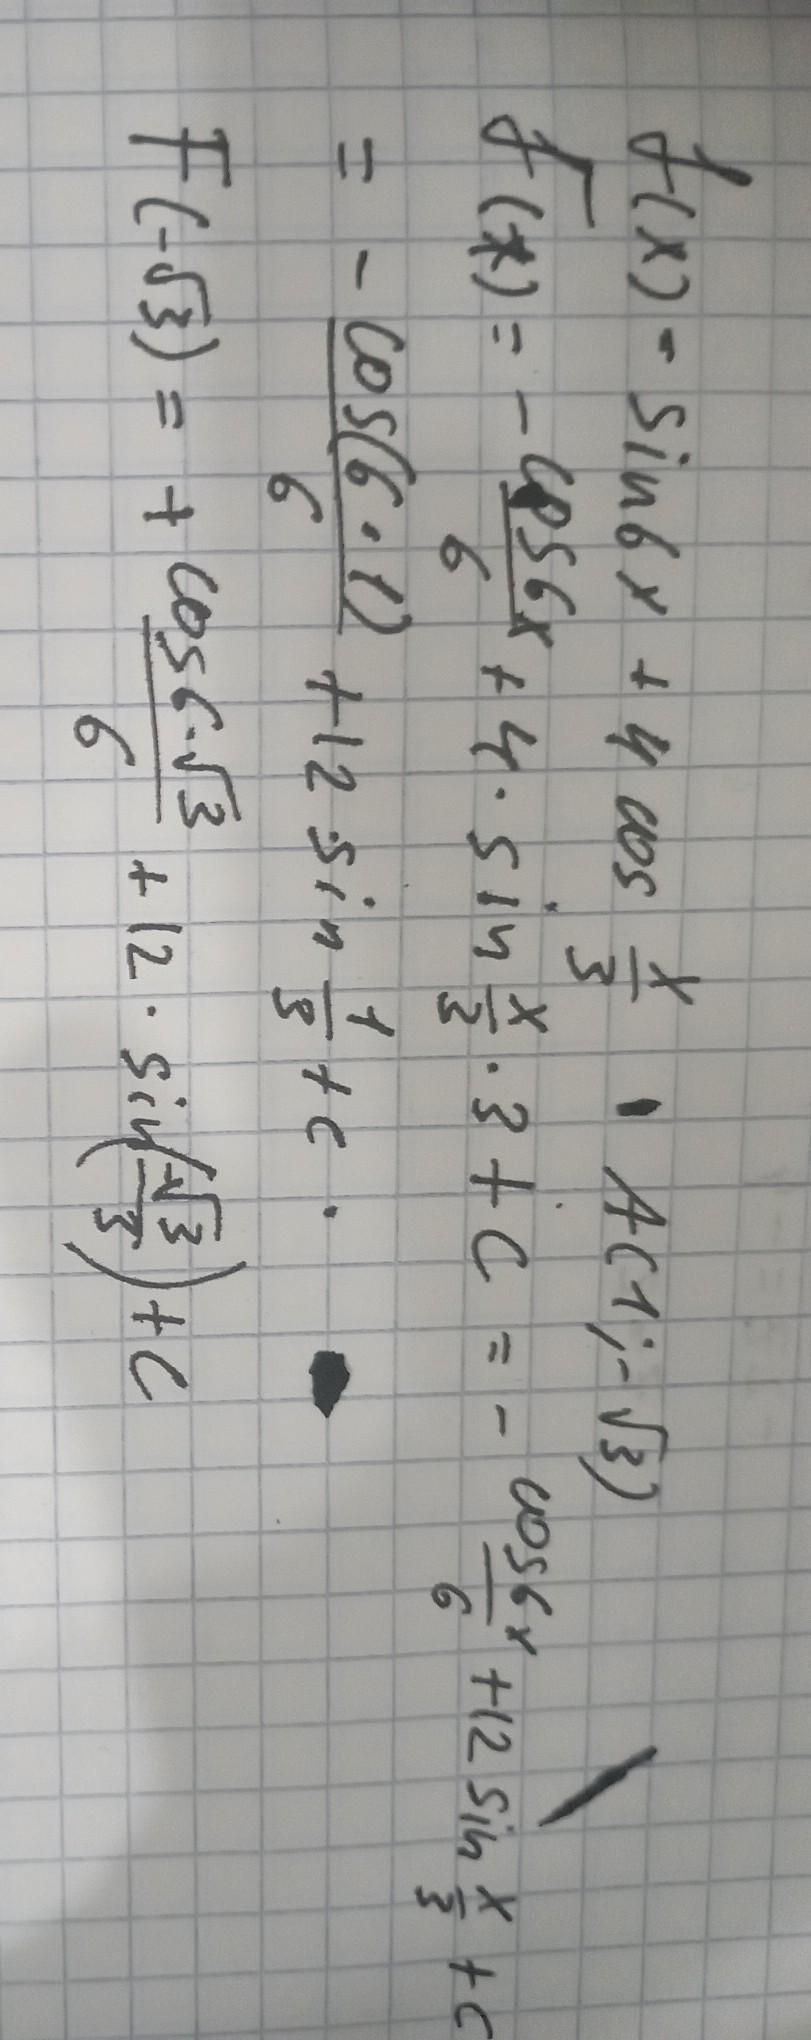 f(x) = sin6x + 4 cos x/3 A(1; -√3)
F(x) = - cos6x/6 + 4 · sin x/3 · 3 + C = - cos6x/6 + 12 sin x/3 + C
= - cos(6·1)/6 + 12 sin 1/3 + C.
F(-√3) = + cos6·√3/6 + 12 · sin(-√3/3) + C